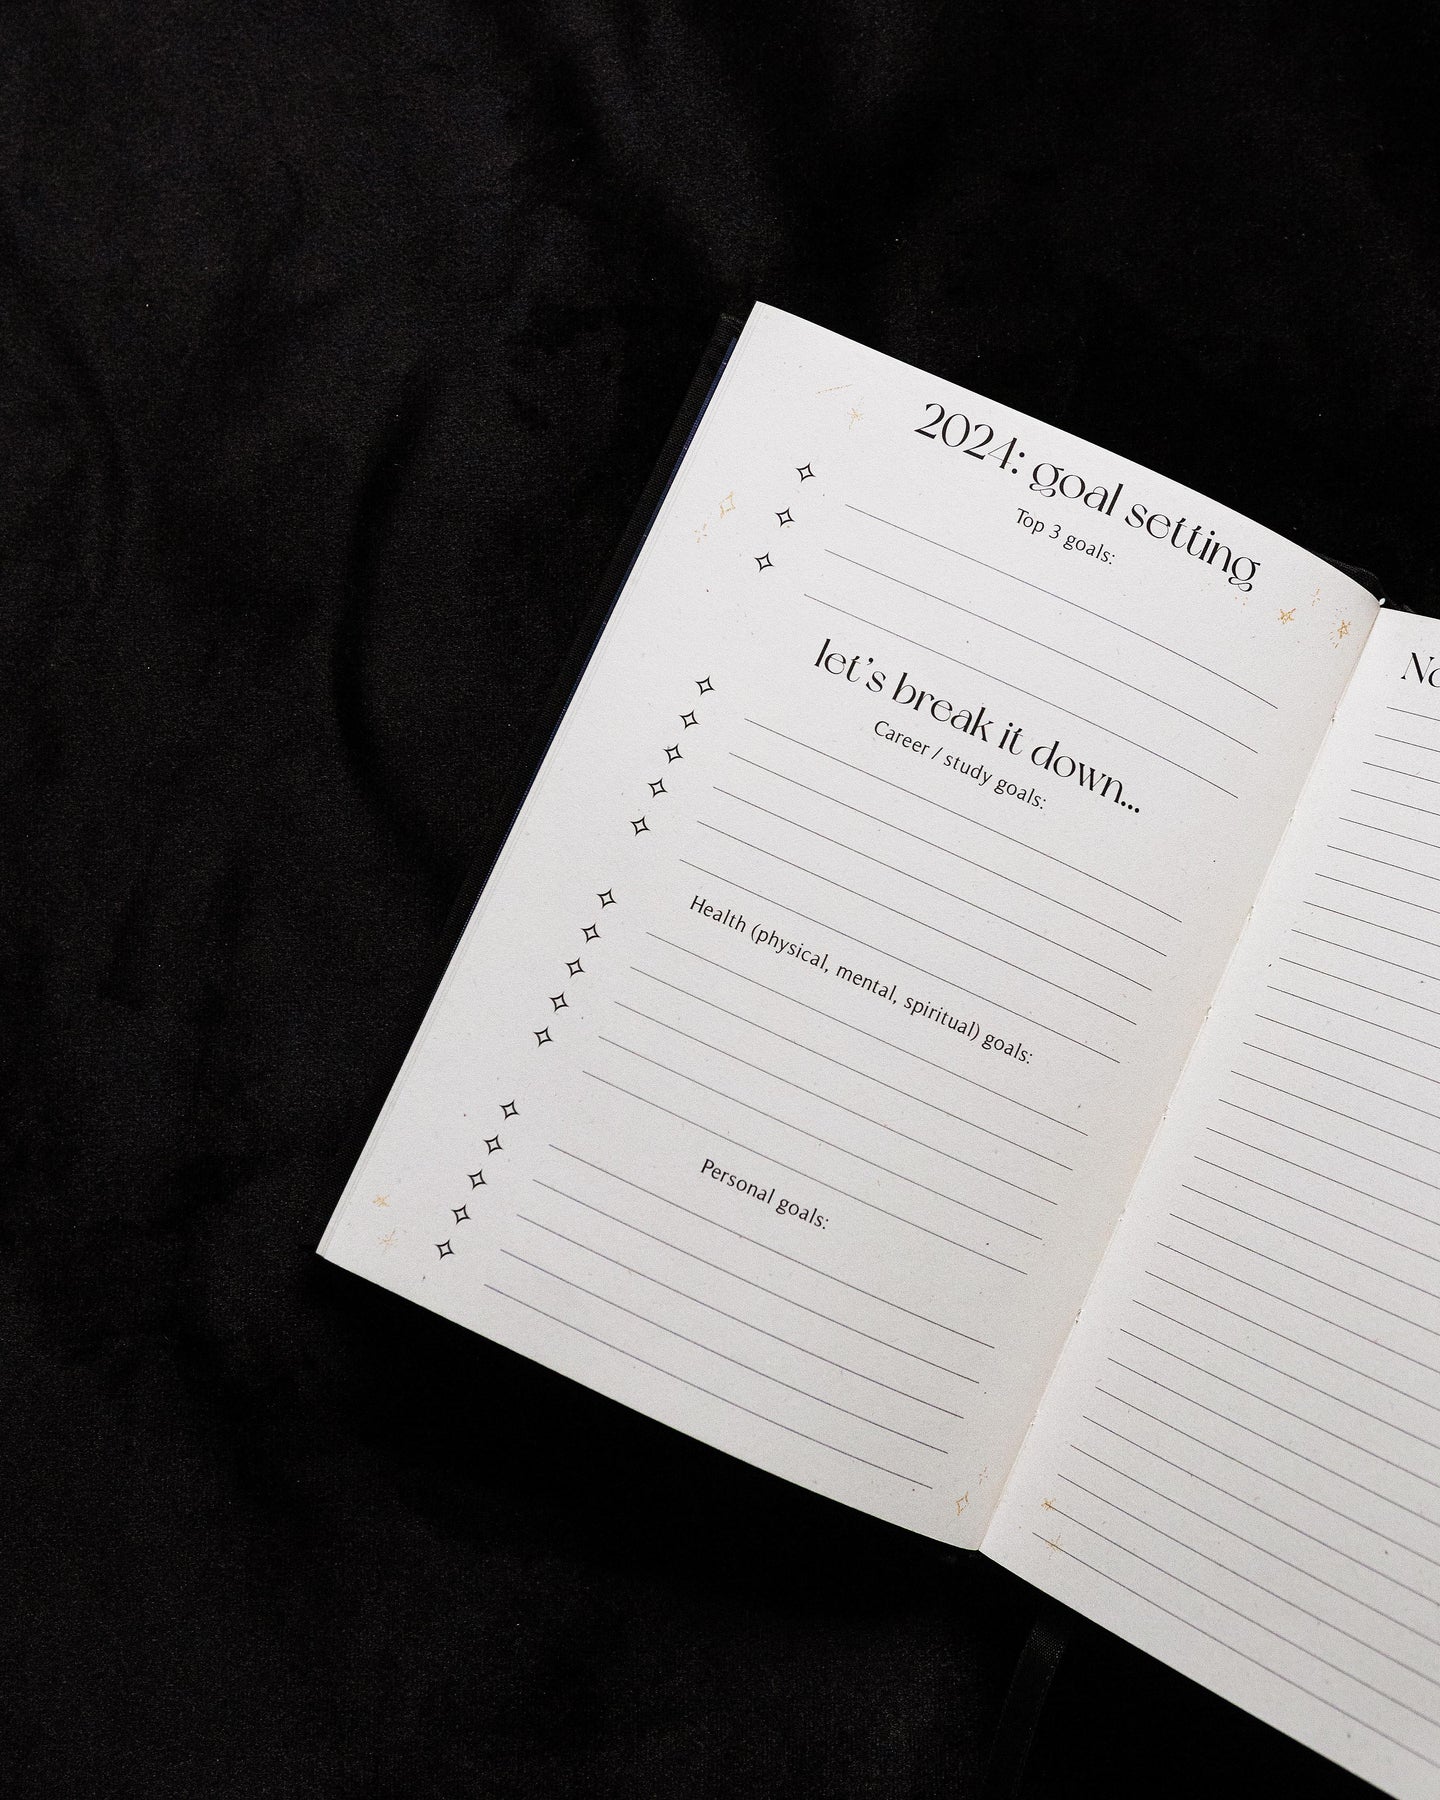 2024: goal setting
Top 3 goals:
let's break it down...
Career / study goals:
Health (physical, mental, spiritual) goals:
Personal goals: